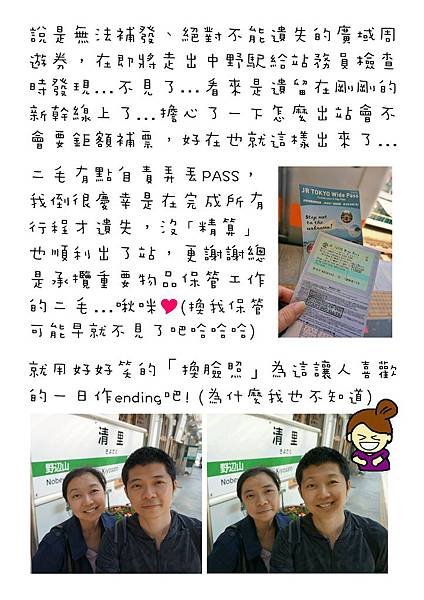 說是無法補發、絕對不能遺失的廣域周
遊券，在即將走出中野駅給站務員檢查
時發現...不見了...看來是遺留在剛剛的
新幹線上了...擔心了一下怎麼出站會不
會要鉅額補票，好在也就這樣出來了...
二毛有點自責弄丟PASS，
我倒很慶幸是在完成所有
行程才遺失，沒「精算」
也順利出了站，更謝謝總
是承攬重要物品保管工作
的二毛...啾咪(換我保管
可能早就不見了吧哈哈哈)
JR TOKYO Wide Pass
Step out
to the
unknown!
就用好好笑的「換臉照」為這讓人喜歡
的一日作ending吧! (為什麼我也不知道)
清里
きよさと
野辺山
Kiyosato
清里
きよさと
野辺山
Kiyosato